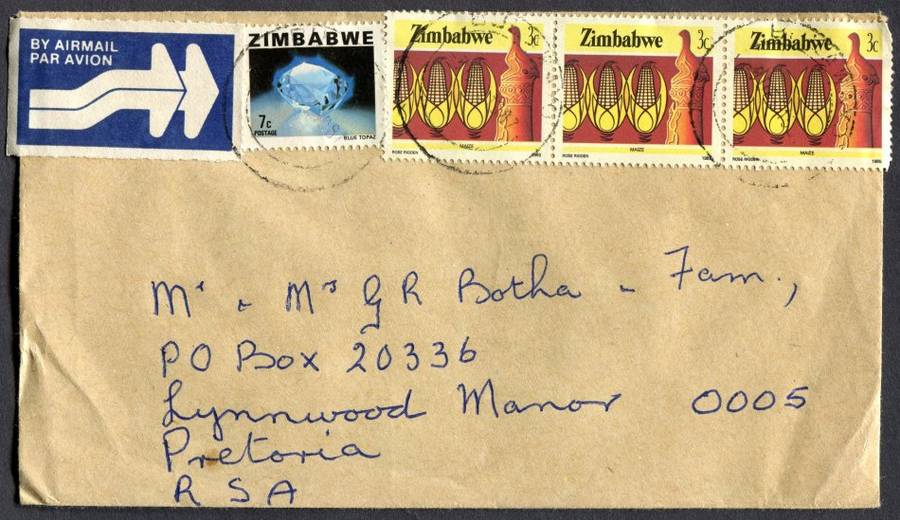 BY AIRMAIL
PAR AVION
ZIMBABWE
7c
POSTAGE
BLUE TOPAZ
Zimbabwe 3c
MAIZE
ROSE RIGDEN 1985
Zimbabwe 3c
MAIZE
ROSE RIGDEN 1985
Zimbabwe 3c
MAIZE
ROSE RIGDEN 1985
Mr & Mrs G R Botha - Fam.,
PO Box 20336
Lynnwood Manor 0005
Pretoria
R S A